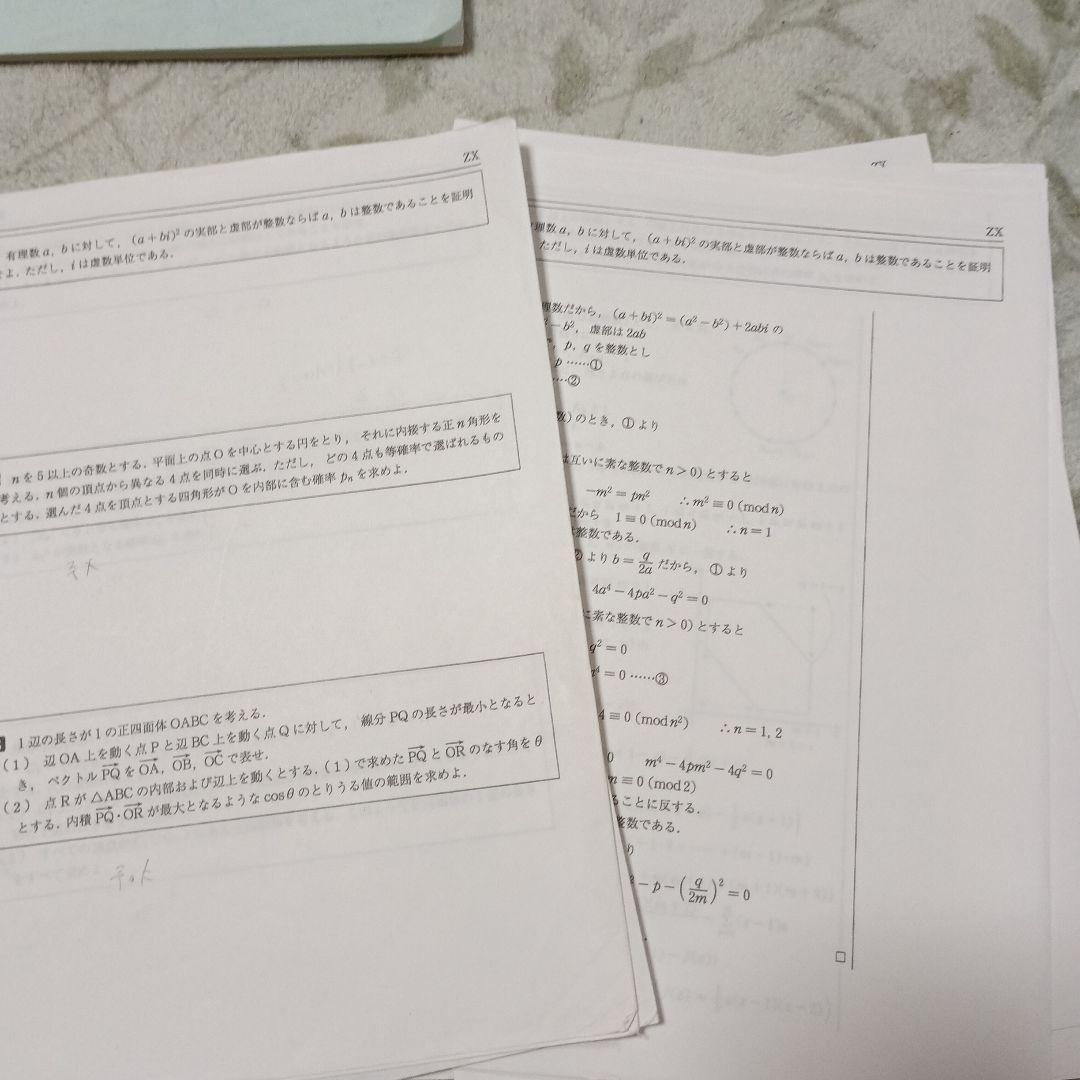 ZX
有理数 a, b に対して, (a+bi)² の実部と虚部が整数ならば a, b は整数であることを証明
せよ. ただし, i は虚数単位である.
n を 5 以上の奇数とする. 平面上の点 O を中心とする円をとり, それに内接する正 n 角形を
考える. n 個の頂点から異なる 4 点を同時に選ぶ. ただし, どの 4 点も等確率で選ばれるもの
とする. 選んだ 4 点を頂点とする四角形が O を内部に含む確率 pₙ を求めよ.
1 辺の長さが 1 の正四面体 OABC を考える.
(1) 辺 OA 上を動く点 P と辺 BC 上を動く点 Q に対して, 線分 PQ の長さが最小となると
き, ベクトル \overrightarrow{PQ} を \overrightarrow{OA}, \overrightarrow{OB}, \overrightarrow{OC} で表せ.
(2) 点 R が △ABC の内部および辺上を動くとする. (1) で求めた \overrightarrow{PQ} と \overrightarrow{OR} のなす角を θ
とする. 内積 \overrightarrow{PQ}・\overrightarrow{OR} が最大となるような cosθ のとりうる値の範囲を求めよ.
ZX
理数 a, b に対して, (a+bi)² の実部と虚部が整数ならば a, b は整数であることを証明
ただし, i は虚数単位である.
理数だから, (a+bi)²=(a²−b²)+2abi の
−b², 虚部は 2ab
p, q を整数とし
p ……①
……②
数) のとき, ① より
は互いに素な整数で n>0) とすると
−m²=pn² ∴m²≡0 (mod n)
だから 1≡0 (mod n) ∴n=1
整数である.
② より b=q/2a だから, ① より
4a⁴−4pa²−q²=0
に素な整数で n>0) とすると
q²=0
n⁴=0 ……③
4≡0 (mod n²) ∴n=1, 2
m⁴−4pm²−4q²=0
m≡0 (mod 2)
ことに反する.
整数である.
−p−(q/2m)²=0
□